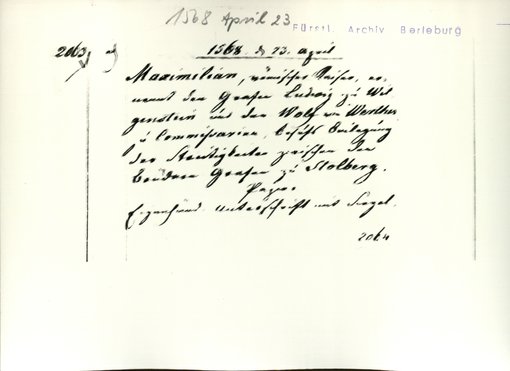 1568 April 23
Fürstl. Archiv Berleburg
2063 a)
1568. d. 23. April
Maximilian, römischer Kaiser, er-
nennt den Grafen Ludwig zu Wit-
genstein und den Wolf von Werther
zu Commissarien, behufs Beilegung
der Streitigkeiten zwischen den
Brüdern Grafen zu Stolberg.
Papier
Eigenhänd. Unterschrift mit Siegel.
2064